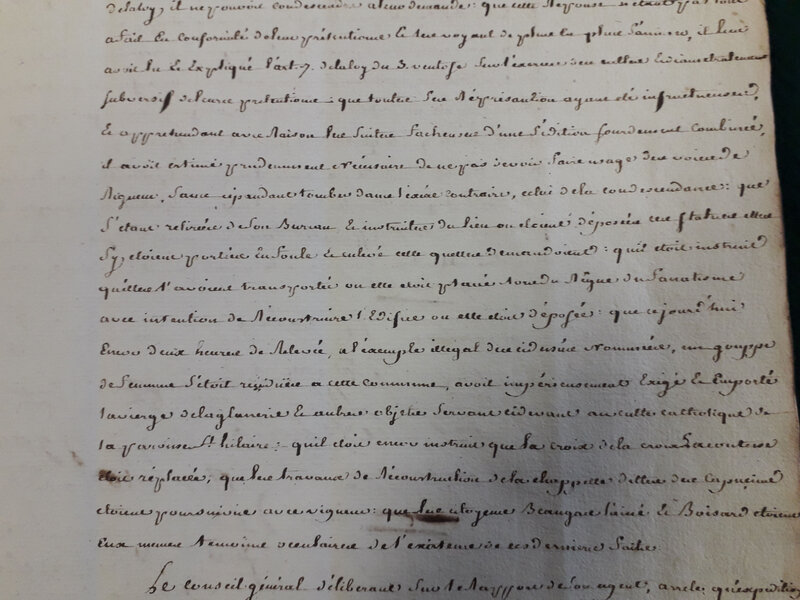 de la loy, il ne pouvoit condescendre a leur demande : que cette Réponse n'etant pas tout
a fait En conformité de leurs prétentions Et les voyant de plus En plus s'animer, il leur
avoit lu Et Expliqué l'art. 7. de la loy du 3. ventose sur l'exercice des cultes Et diametralement
subversif de leurs prétentions : que toutes ses Réprésentations ayant été infructueuses,
Et apprehendant avec Raison les suites facheuses d'une sédition sourdement combinée,
il avoit estimé prudemment nécéssaire de ne pas devoir faire usage des voies de
Rigueur, sans cépendant tomber dans l'éxcès contraire, celui de la condescendance : que
s'étant retirées de son Bureau Et instruites du lieu ou étoient déposées ces statues elles
s'y étoient portées En foule Et enlevé celle qu'elles demandoient : qu'il étoit instruit
qu'elles l'avoient transportée ou elle étoit placée lors du Règne du fanatisme
avec intention de Réconstruire l'Edifice ou elle étoit déposée : que cejourd'hui
Environ deux heures de Relevée, a l'éxemple illégal des cidessus Nommées, un grouppe
de femmes s'étoit rendues a cette commune, avoit impérieusement Exigé Et Emporté
la vierge de Et autres objets servant cidevant au culte catholique de
la paroisse St hilaire ; qu'il étoit encor instruit que la croix de la croix
étoit réplacée ; que les travaux de Réconstruction de la chappelle ditte des Capucins
étoient poursuivis avec vigueur : que les citoyens l'ainé Et Boisard étoient
Eux memes temoins oculaires de l'existence de ces derniers faits.
Le conseil général déliberant sur le rapport de son agent, arrete qu'expedition